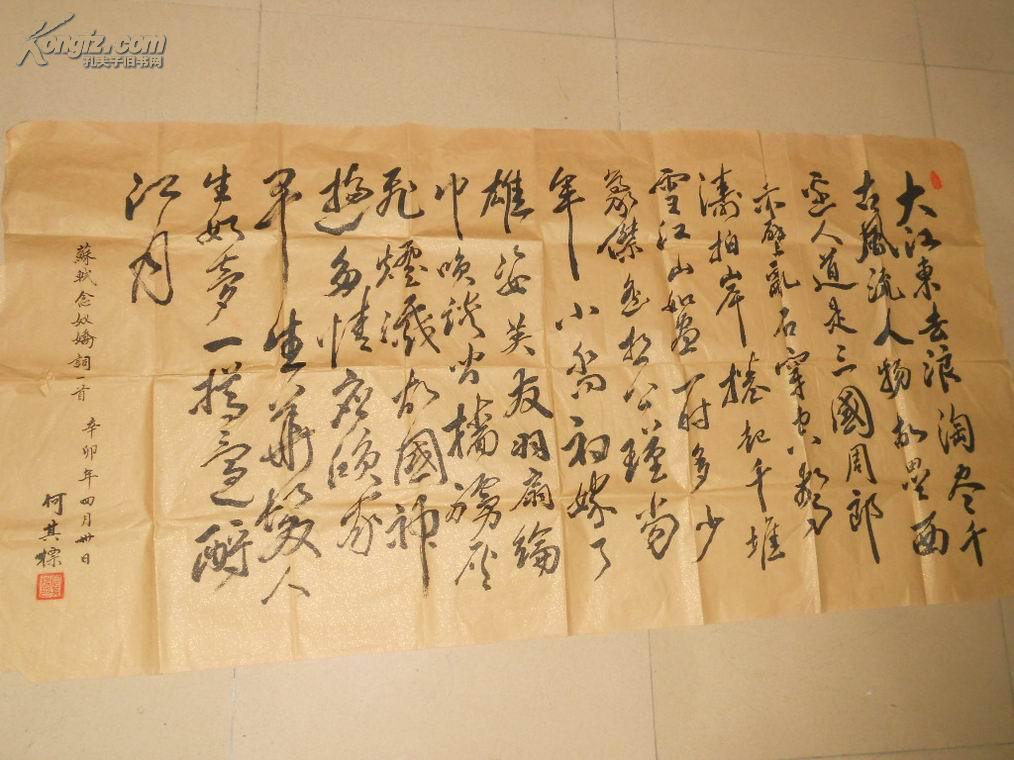 大江東去浪淘尽千
古風流人物故壘西
邊人道是三國周郎
赤壁乱石穿空驚
濤拍岸捲起千堆
雪江山如畫一时多少
豪傑遥想公瑾当
年小喬初嫁了
雄姿英发羽扇綸
巾談间檣虜灰
飛煙滅故國神
遊多情应我
早生華髮人
生如夢一樽還酹
江月
蘇軾念奴嬌詞一首 辛卯年四月卅日
何其標
Kongfz.com
孔夫子旧书网